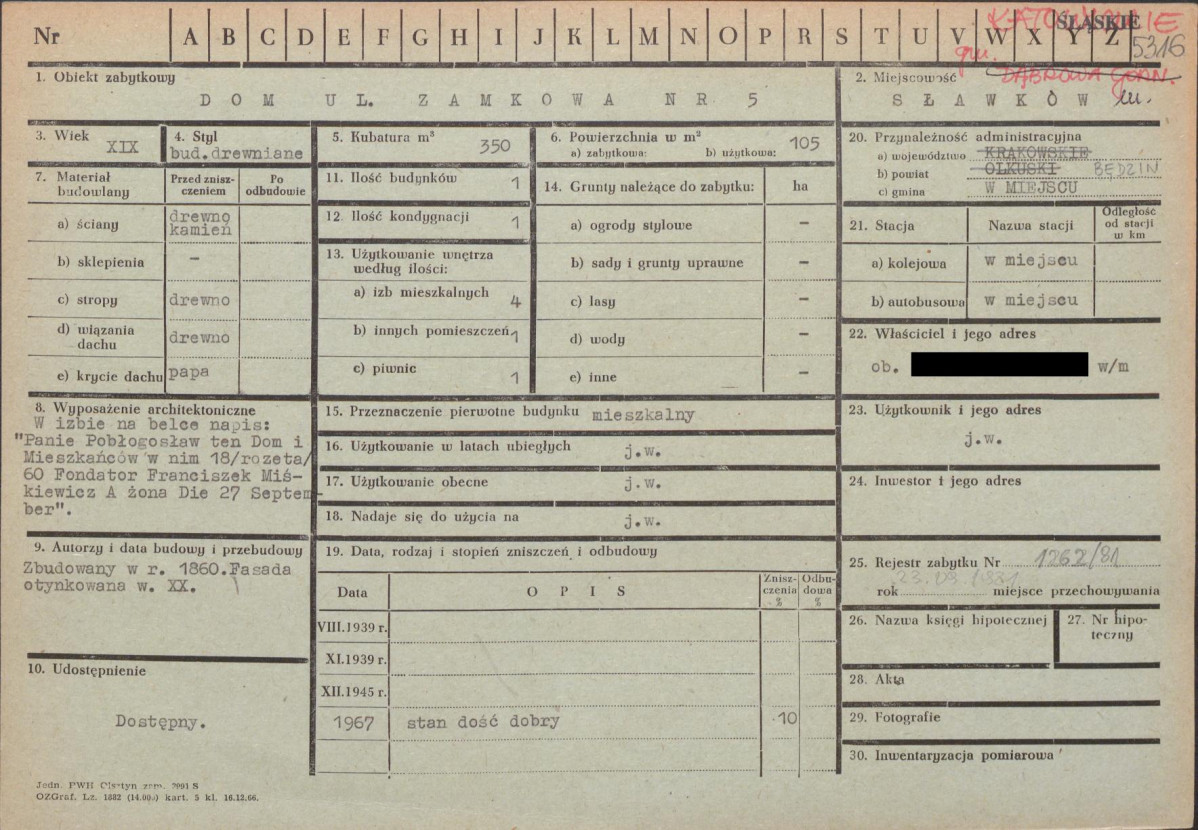 Nr A B C D E F G H I J K L M N O P R S T U V W X Y Z
KATOWICKIE
ŚLĄSKIE
5316
gm.
DĄBROWA GÓRN.
1. Obiekt zabytkowy
DOM UL. ZAMKOWA NR 5
2. Miejscowość
SŁAWKÓW m.
3. Wiek XIX
4. Styl
bud.drewniane
5. Kubatura m³ 350
6. Powierzchnia w m²
a) zabytkowa: b) użytkowa: 105
7. Materiał budowlany
Przed zniszczeniem
Po odbudowie
a) ściany drewno kamień
b) sklepienia -
c) stropy drewno
d) wiązania dachu drewno
e) krycie dachu papa
11. Ilość budynków 1
12. Ilość kondygnacji 1
13. Użytkowanie wnętrza
według ilości:
a) izb mieszkalnych 4
b) innych pomieszczeń 1
c) piwnic 1
14. Grunty należące do zabytku: ha
a) ogrody stylowe -
b) sady i grunty uprawne -
c) lasy -
d) wody
e) inne -
20. Przynależność administracyjna
a) województwo KRAKOWSKIE
b) powiat OLKUSKI BĘDZIN
c) gmina W MIEJSCU
21. Stacja Nazwa stacji Odległość od stacji w km
a) kolejowa w miejscu
b) autobusowa w miejscu
22. Właściciel i jego adres
ob. w/m
8. Wyposażenie architektoniczne
W izbie na belce napis:
"Panie Pobłogosław ten Dom i
Mieszkańców w nim 18/rozeta/
60 Fondator Franciszek Miś-
kiewicz A żona Die 27 Septem-
ber".
15. Przeznaczenie pierwotne budynku mieszkalny
16. Użytkowanie w latach ubiegłych j.w.
17. Użytkowanie obecne j.w.
18. Nadaje się do użycia na j.w.
23. Użytkownik i jego adres
j.w.
24. Inwestor i jego adres
9. Autorzy i data budowy i przebudowy
Zbudowany w r. 1860.Fasada
otynkowana w. XX.
10. Udostępnienie
Dostępny.
19. Data, rodzaj i stopień zniszczeń i odbudowy
Data OPIS Zniszczenia % Odbudowa %
VIII.1939 r.
XI.1939 r.
XII.1945 r.
1967 stan dość dobry 10
25. Rejestr zabytku Nr 1262/81
23.09.1981
rok miejsce przechowywania
26. Nazwa księgi hipotecznej
27. Nr hipoteczny
28. Akta
29. Fotografie
30. Inwentaryzacja pomiarowa
Jedn. PWH Olsztyn zam. 2991 S
OZGraf. Lz. 1882 (14.000) kart. 5 kl. 16.12.66.